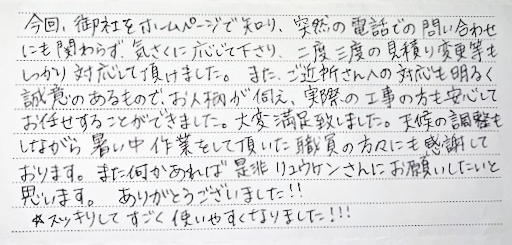 今回、御社をホームページで知り、突然の電話での問い合わせ
にも関わらず、気さくに応じて下さり、二度三度の見積り変更等も
しっかり対応して頂けました。また、ご近所さんへの対応も明るく
誠意のあるもので、お人柄が伺え、実際の工事の方も安心して
お任せすることができました。大変満足致しました。天候の調整も
しながら暑い中作業をして頂いた職員の方々にも感謝して
おります。また何かあれば是非リュウケンさんにお願いしたいと
思います。ありがとうございました!!
☆スッキリしてすごく使いやすくなりました!!!